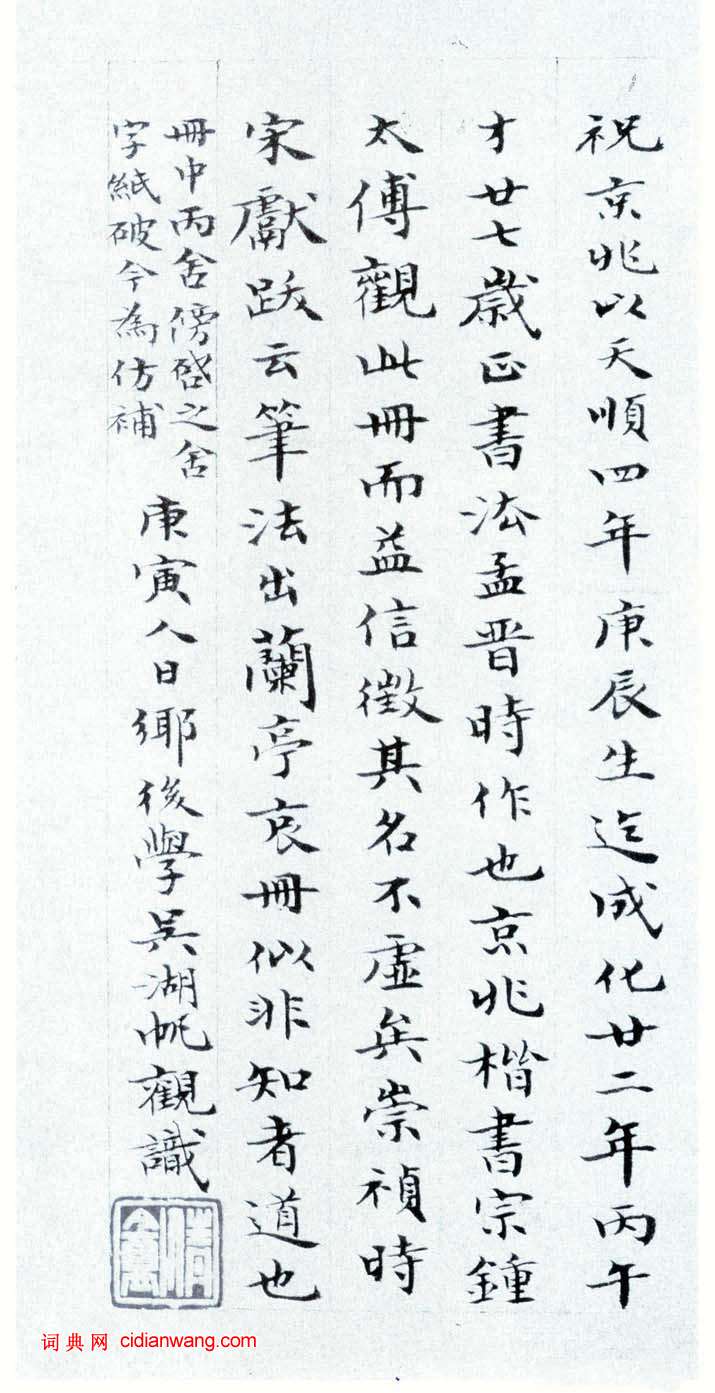 祝京兆以天順四年庚辰生迄成化廿二年丙午
才廿七歲正書法孟晋時作也京兆楷書宗鍾
太傅觀此冊而益信徵其名不虛矣崇禎時
宋獻跋云筆法出蘭亭哀冊似非知者道也
冊中丙舍傍啓之舍
字紙破今為仿補
庚寅人日鄉後學吳湖帆觀識
词典网 cidianwang.com